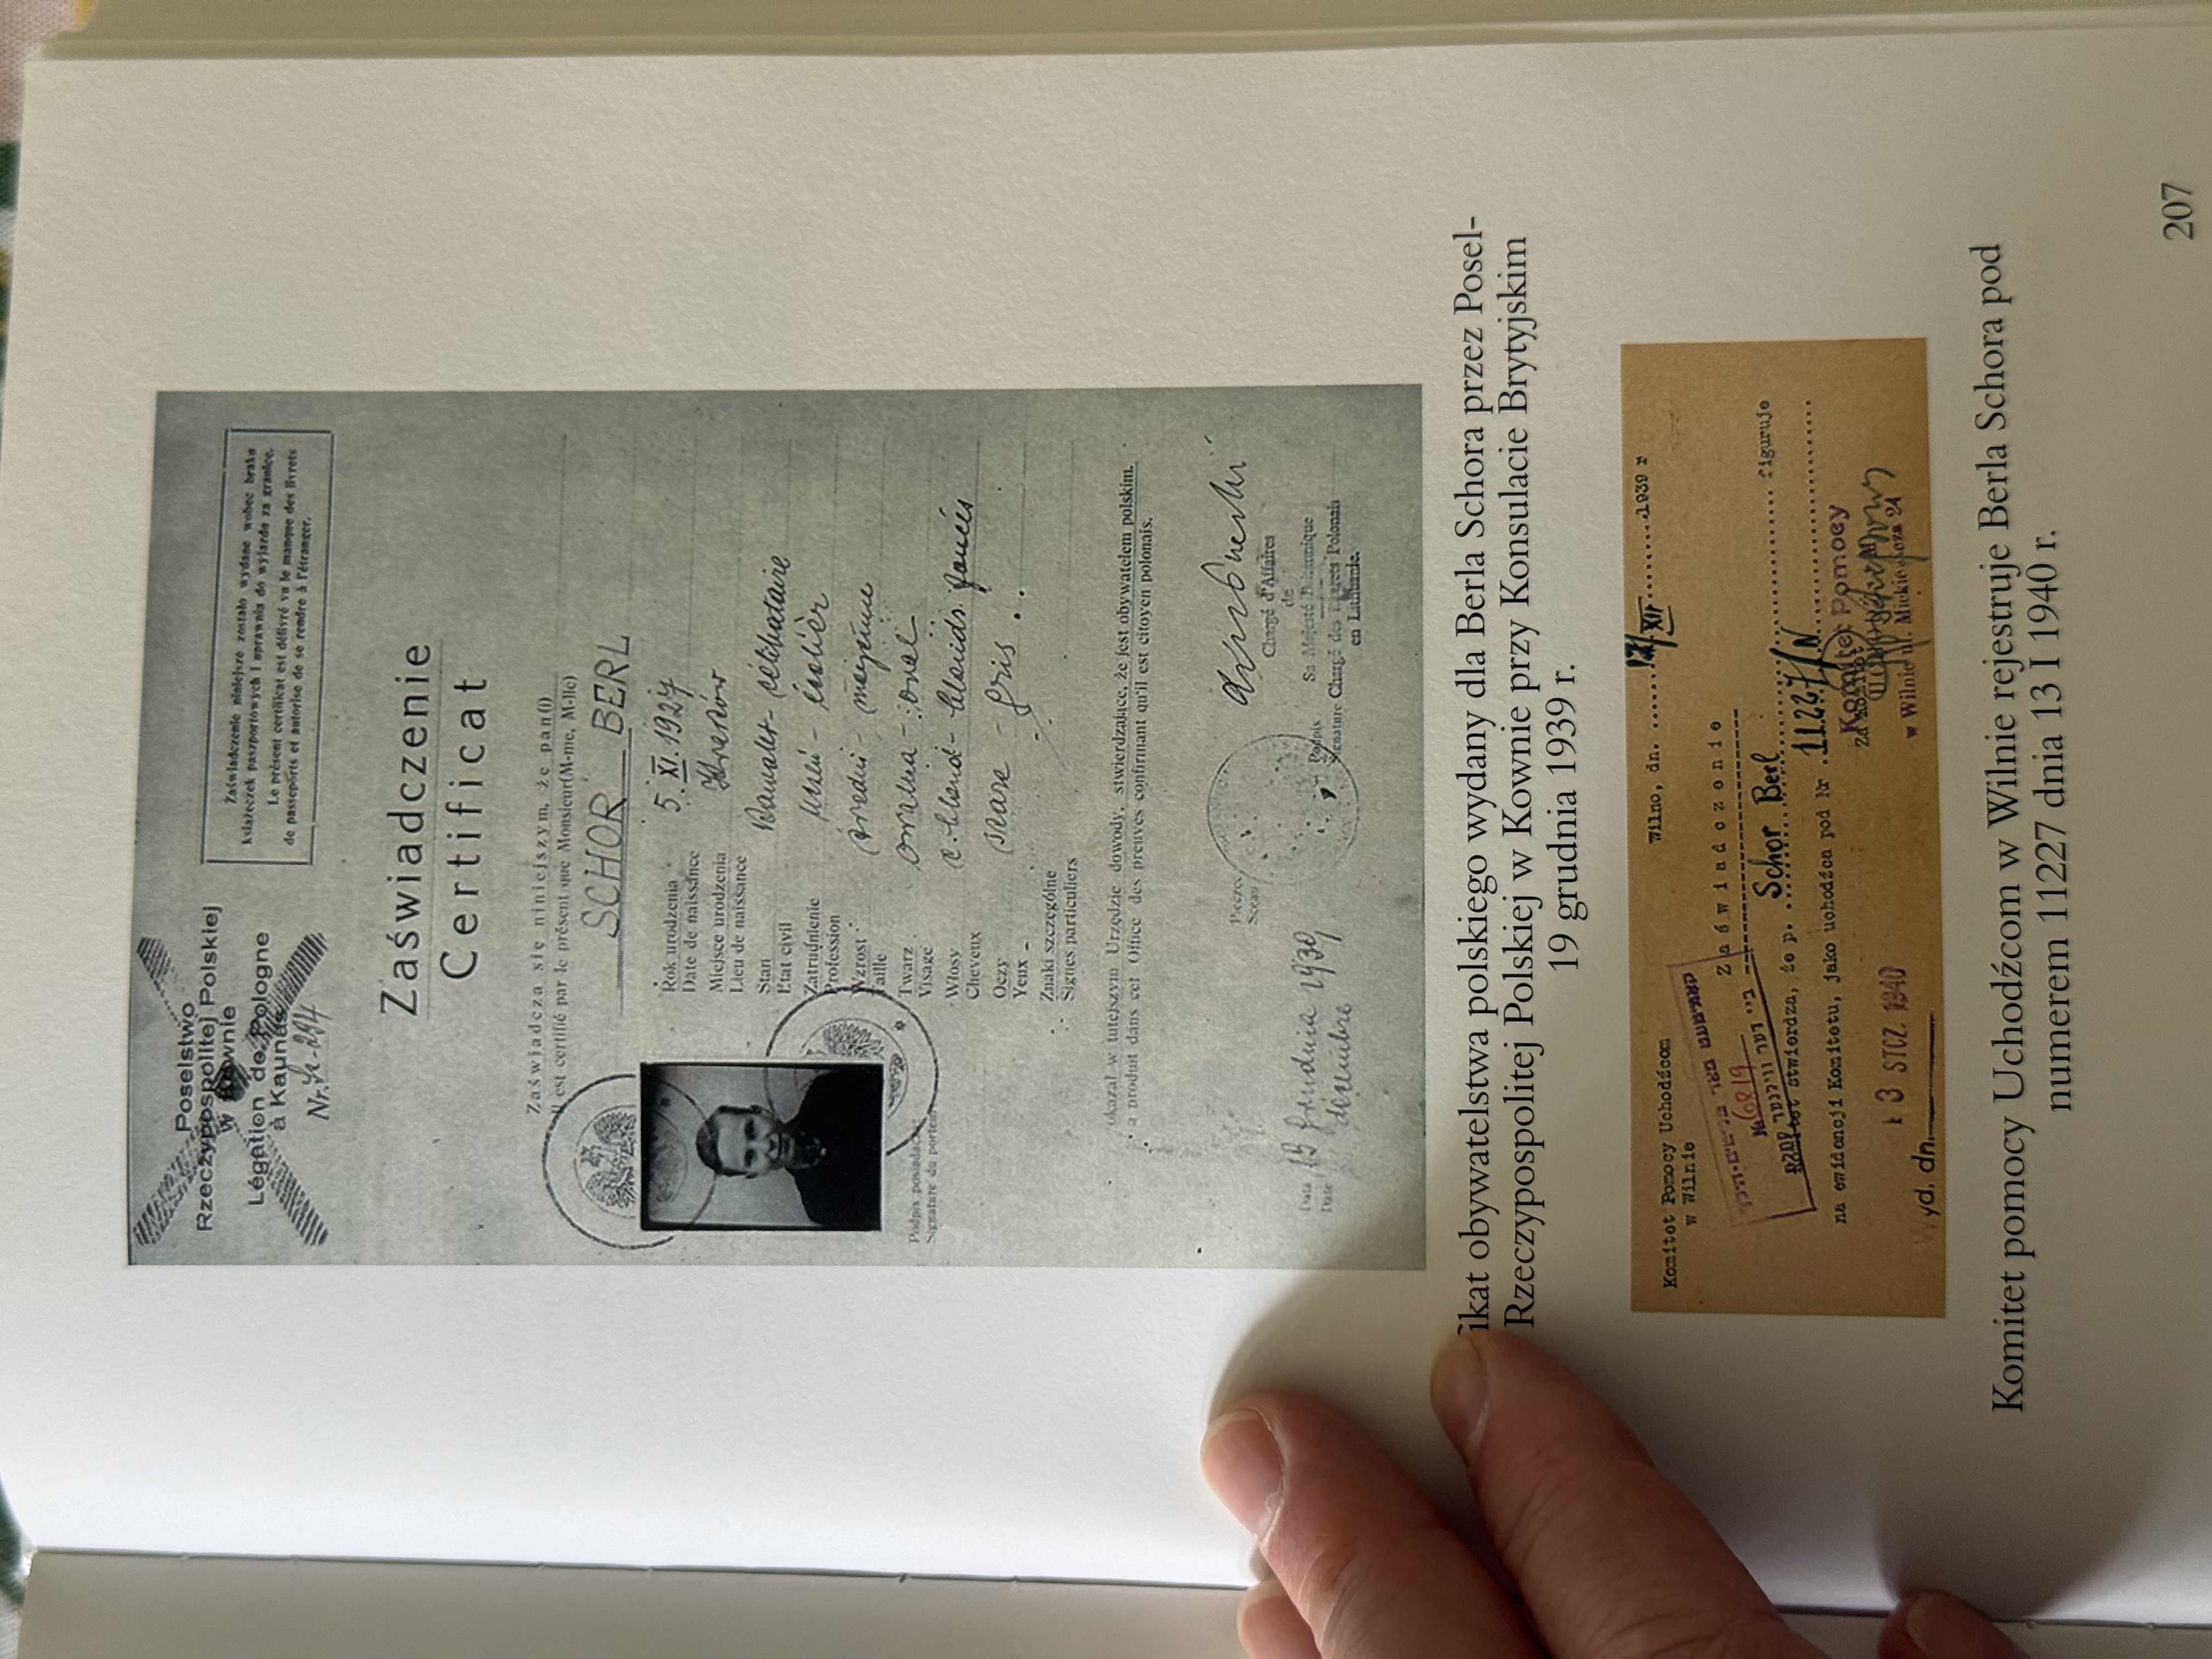 Poselstwo
Rzeczypospolitej Polskiej
w Kownie
Légation de Pologne
à Kaunas
Zaświadczenie niniejsze zostało wydane wobec braku
książeczek paszportowych i uprawnia do wyjazdu za granicę.
Le présent certificat est délivré vu le manque des livrets
de passeports et autorise de se rendre à l'étranger.
Zaświadczenie
Certificat
Zaświadcza się niniejszym, że pan(i)
Il est certifié par le présent que Monsieur(M-me, M-lle)
SCHOR BERL
Rok urodzenia
Date de naissance
5. XI. 1927
Miejsce urodzenia
Lieu de naissance
Stan
Etat civil
Kawaler - célibataire
Zatrudnienie
Profession
uczeń - écolier
Wzrost
Taille
średni - moyenne
Twarz
Visage
owalna - oval
Włosy
Cheveux
c. blond - blonds foncés
Oczy
Yeux -
szare - gris
Znaki szczególne
Signes particuliers
Podpis posiadacza
Signature du porteur
okazał w tutejszym Urzędzie dowody, stwierdzające, że jest obywatelem polskim.
a produit dans cet Office des preuves confirmant qu'il est citoyen polonais.
Data 19 grudnia 1939
Date décembre
Pieczęć
Sceau
Podpis
Signature
Chargé d'Affaires
de
Sa Majesté Britannique
Chargé des Intérêts Polonais
en Lithuanie.
ikat obywatelstwa polskiego wydany dla Berla Schora przez Posel-
Rzeczypospolitej Polskiej w Kownie przy Konsulacie Brytyjskim
19 grudnia 1939 r.
Komitet Pomocy Uchodźcom
w Wilnie
Wilno, dn. XII 1939 r
Zaświadczenie
№ 0819
stwierdza, że p. Schor Berl figuruje
na ewidencji Komitetu, jako uchodźca pod Nr 11227/N
13 STCZ. 1940
Za Komitet Pomocy
w Wilnie ul. Mickiewicza 24
Wyd. dn.
Komitet pomocy Uchodźcom w Wilnie rejestruje Berla Schora pod
numerem 11227 dnia 13 I 1940 r.
207